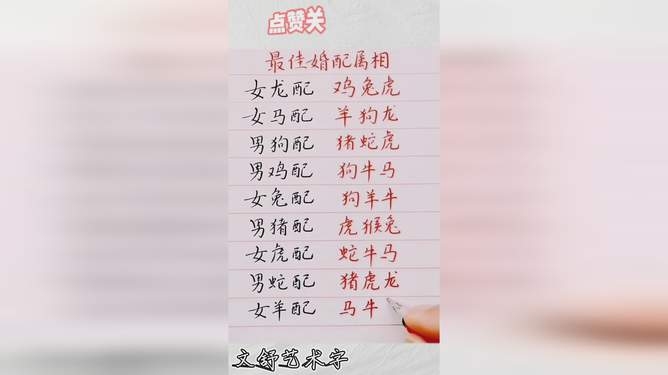 点赞关
最佳婚配属相
女龙配 鸡兔虎
女马配 羊狗龙
男狗配 猪蛇虎
男鸡配 狗牛马
女兔配 狗羊牛
男猪配 虎猴兔
女虎配 蛇牛马
男蛇配 猪虎龙
女羊配 马牛
文舒艺术字